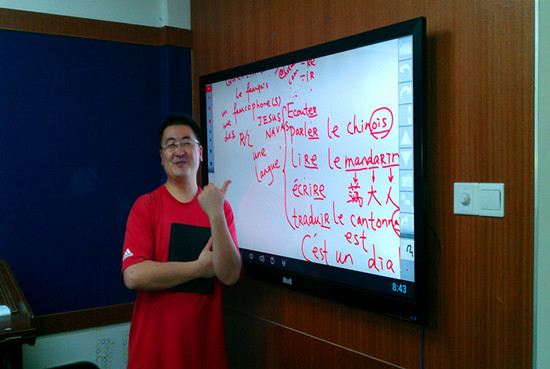 - RE
- IR
le français
un francophone(s)
une
des R/L
JESUS
NAVAS
une
langue
Ecouter
parler le chinois
LIRE le mandarin
écrire 满大人
traduir le cantonna
est
C'est un dia
8:43